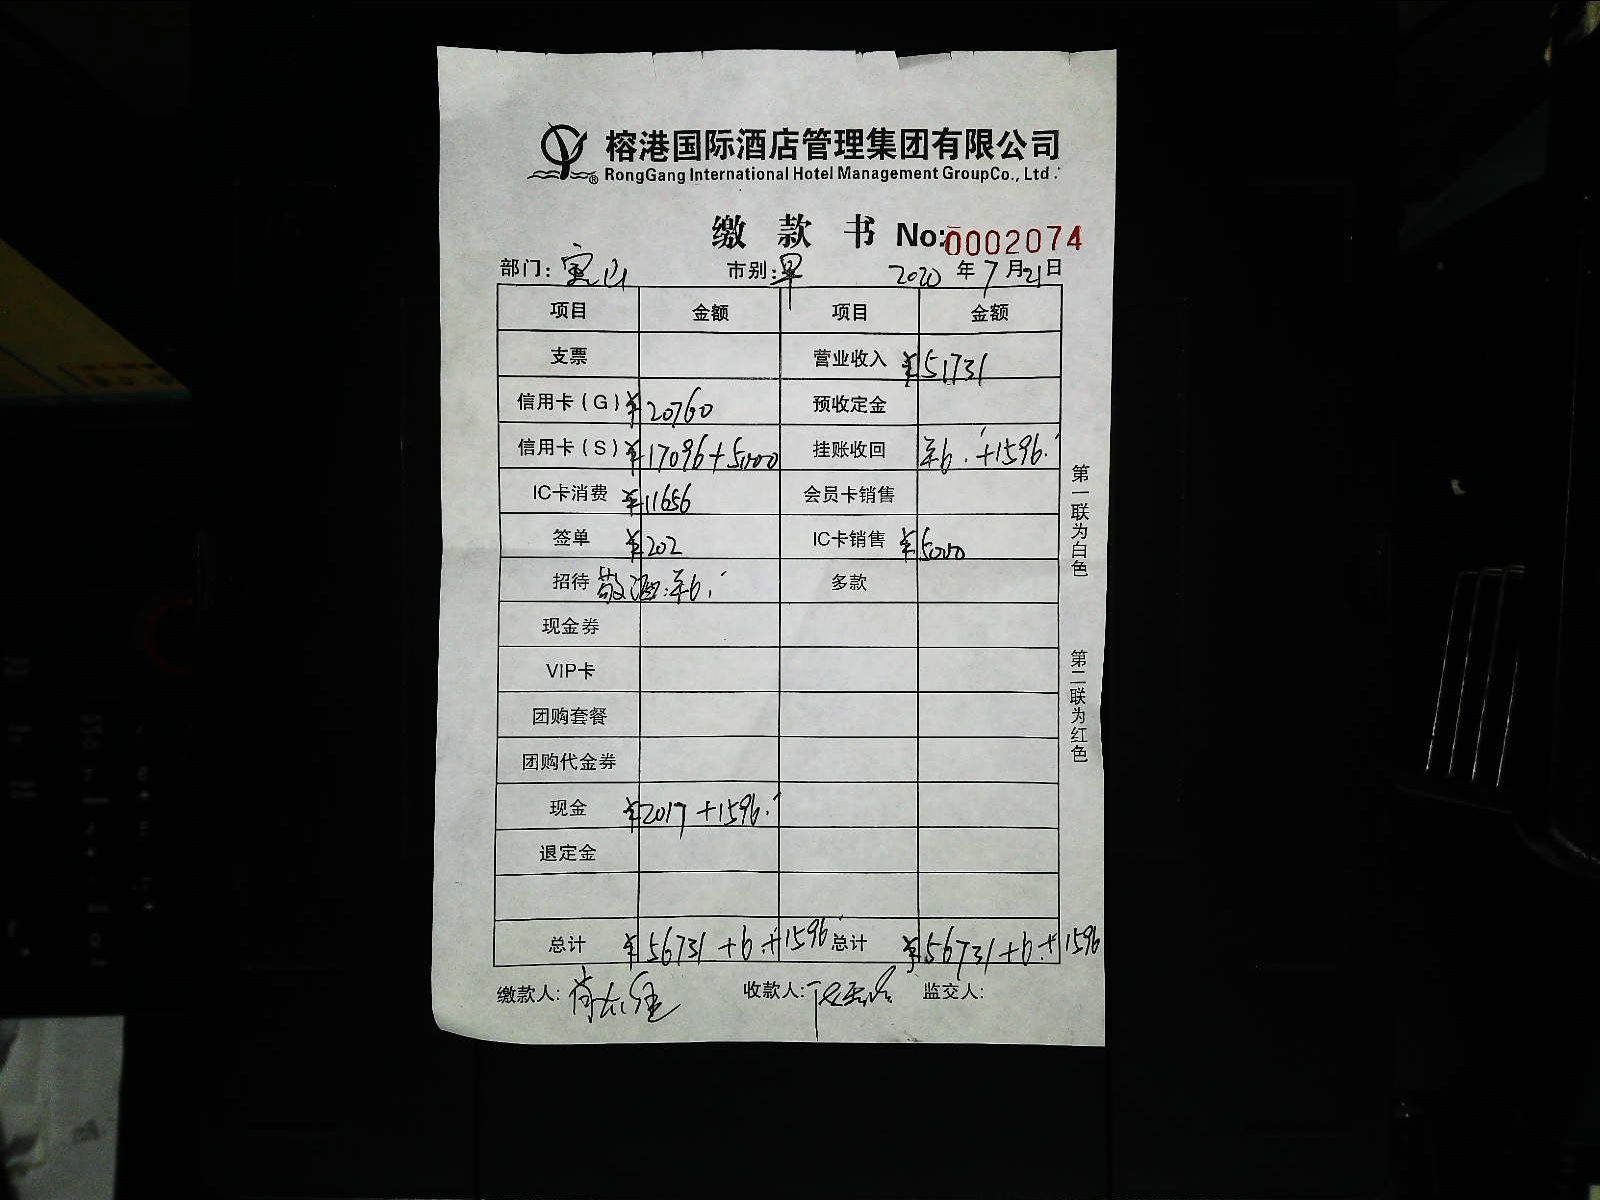 榕港国际酒店管理集团有限公司
® RongGang International Hotel Management GroupCo., Ltd.
缴款书 No: 0002074
部门: 宝山 市别: 早 2020 年 7 月 21 日
项目 金额 项目 金额
支票 营业收入 ¥51731
信用卡(G) ¥20760 预收定金
信用卡(S) ¥17096+5000 挂账收回 羊6.+1596.
IC卡消费 ¥11656 会员卡销售
签单 ¥202 IC卡销售 ¥5000
招待 敬酒:羊6. 多款
现金券
VIP卡
团购套餐
团购代金券
现金 ¥2017+1596.
退定金
总计 ¥56731+6.+1596 总计 ¥56731+6.+1596
缴款人: 收款人: 监交人:
第一联为白色
第二联为红色